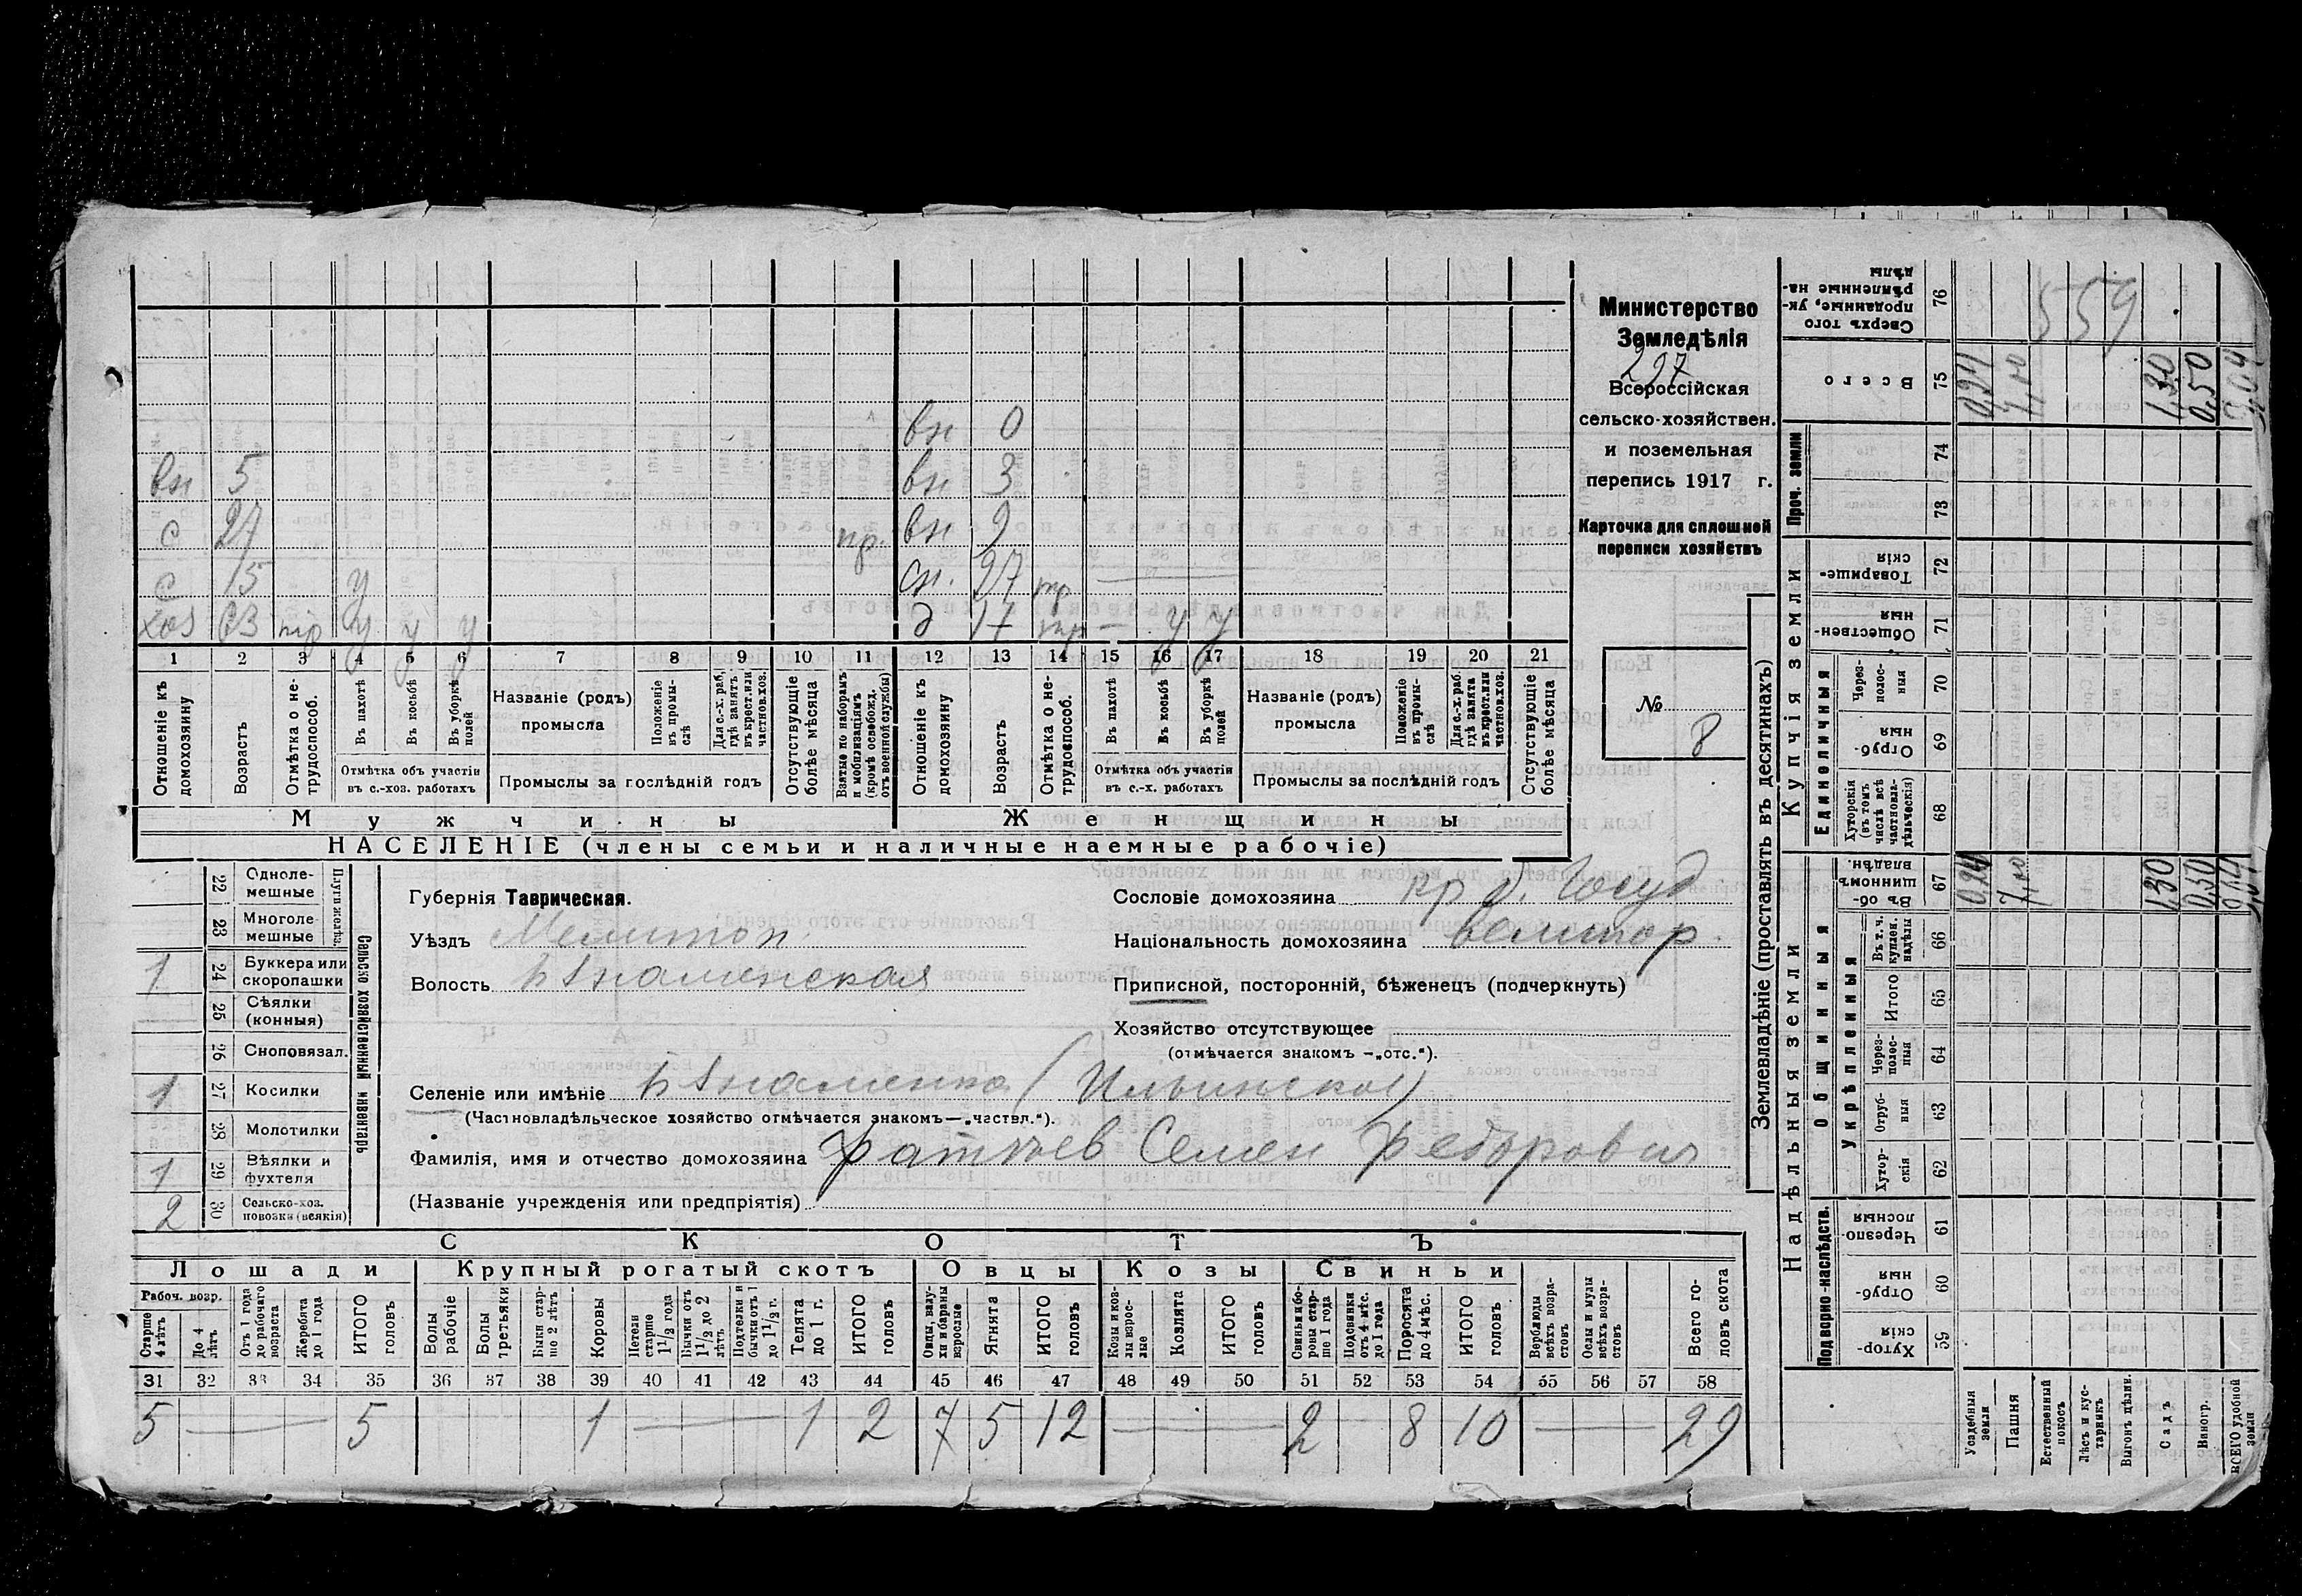 вн 0
вн 5 вн 3
с 27 пр. вн 9
с 15 у сн. 27 тр
хоз 63 тр у у у д 17 тр — у у
1 2 3 4 5 6 7 8 9 10 11 12 13 14 15 16 17 18 19 20 21
Отношеніе къ домохозяину
Возрастъ
Отмѣтка о не-трудоспособ.
Въ пахотѣ
Въ косьбѣ
Въ уборкѣ полей
Отмѣтка объ участіи въ с.-хоз. работахъ
Названіе (родъ) промысла
Положеніе въ промы-слѣ
Для с.-х. раб, гдѣ занятъ въ крест. или частнов. хоз.
Промыслы за послѣдній годъ
Отсутствующіе болѣе мѣсяца
Взятые по наборамъ и мобилизаціямъ (кромѣ освобожд. отъ военной службы)
Отношеніе къ домохозяину
Возрастъ
Отмѣтка о не-трудоспособ.
Въ пахотѣ
Въ косьбѣ
Въ уборкѣ полей
Отмѣтка объ участіи въ с.-х. работахъ
Названіе (родъ) промысла
Положеніе въ промы-слѣ
Для с.-х. раб. гдѣ занята въ крест. или частнов. хоз.
Промыслы за послѣдній годъ
Отсутствующіе болѣе мѣсяца
Мужчины Женщины
НАСЕЛЕНІЕ (члены семьи и наличные наемные рабочіе)
Министерство
Земледѣлія
297
Всероссійская
сельско-хозяйствен.
и поземельная
перепись 1917 г.
Карточка для сплошной
переписи хозяйствъ
№ 8
22 Одноле-мешные
23 Многоле-мешные
Плуги желѣз.
1 24 Буккера или скоропашки
25 Сѣялки (конныя)
26 Сноповязал.
1 27 Косилки
28 Молотилки
1 29 Вѣялки и фухтеля
2 30 Сельско-хоз. повозки (всякія)
Сельско хозяйственный инвентарь
Губернія Таврическая.
Уѣздъ Мелитоп.
Волость Б Знаменская
Сословіе домохозяина кр б. Госуд
Національность домохозяина великор.
Приписной, посторонній, бѣженецъ (подчеркнуть)
Хозяйство отсутствующее
(отмѣчается знакомъ —„отс.“).
Селеніе или имѣніе Б Знаменка (Ильинское)
(Частновладѣльческое хозяйство отмѣчается знакомъ—„частвл.“).
Фамилія, имя и отчество домохозяина Семен Федорович
(Названіе учрежденія или предпріятія)
СКОТЪ
Лошади Крупный рогатый скотъ Овцы Козы Свиньи
Рабоч. возр.
Старше 4 лѣтъ
До 4 лѣтъ
Отъ 1 года до рабочаго возраста
Жеребята до 1 года
ИТОГО головъ
Волы рабочіе
Волы третьяки
Быки стар-ше 2 лѣтъ
Коровы
Нетели старше 1 1/2 года
Бычки отъ 1 1/2 до 2 лѣтъ
Подтелки и бычки отъ 1 до 1 1/2 г.
Телята до 1 г.
ИТОГО головъ
Овцы, валу-хи и бараны взрослые
Ягнята
ИТОГО головъ
Козы и коз-лы взрос-лые
Козлята
ИТОГО головъ
Свиньи и бо-ровы стар-ше 1 года
Подсвинки отъ 4 мѣс. до 1 года
Поросята до 4 мѣс.
ИТОГО головъ
Верблюды всѣхъ возра-стовъ
Ослы и мулы всѣхъ возра-стовъ
Всего го-ловъ скота
31 32 33 34 35 36 37 38 39 40 41 42 43 44 45 46 47 48 49 50 51 52 53 54 55 56 57 58
5 — 5 1 — 1 2 7 5 12 — 2 8 10 — 29
Землевладѣніе (проставлять въ десятинахъ)
Надѣльныя земли Купчія земли Проч. земли
Подворно-наслѣдств. Общинныя Единоличныя
Укрѣпленныя
Хутор-скія 59
Отруб-ныя 60
Черезпо-лосныя 61
Хутор-скія 62
Отруб-ныя 63
Через-полос-ныя 64
Итого 65
Въ т. ч. куплен. надѣлы 66
Въ об-щинномъ владѣн. 67
Хуторскія (въ томъ числѣ всѣ частновла-дѣльческія) 68
Отруб-ныя 69
Через-полос-ныя 70
Обществен-ныя 71
Товарище-скія 72
73
74
Всего 75
Сверхъ того проданные, ук-рѣпленные на-дѣлы 76
559
Усадебныя земли 0,24
Пашня 7,00 7,00
Естественный покосъ
Лѣсъ и кус-тарникъ
Выгонъ цѣлин.
Садъ 1,30 1,30
Виногр. 0,50 0,50
ВСЕГО удобной земли 9,04 9,04